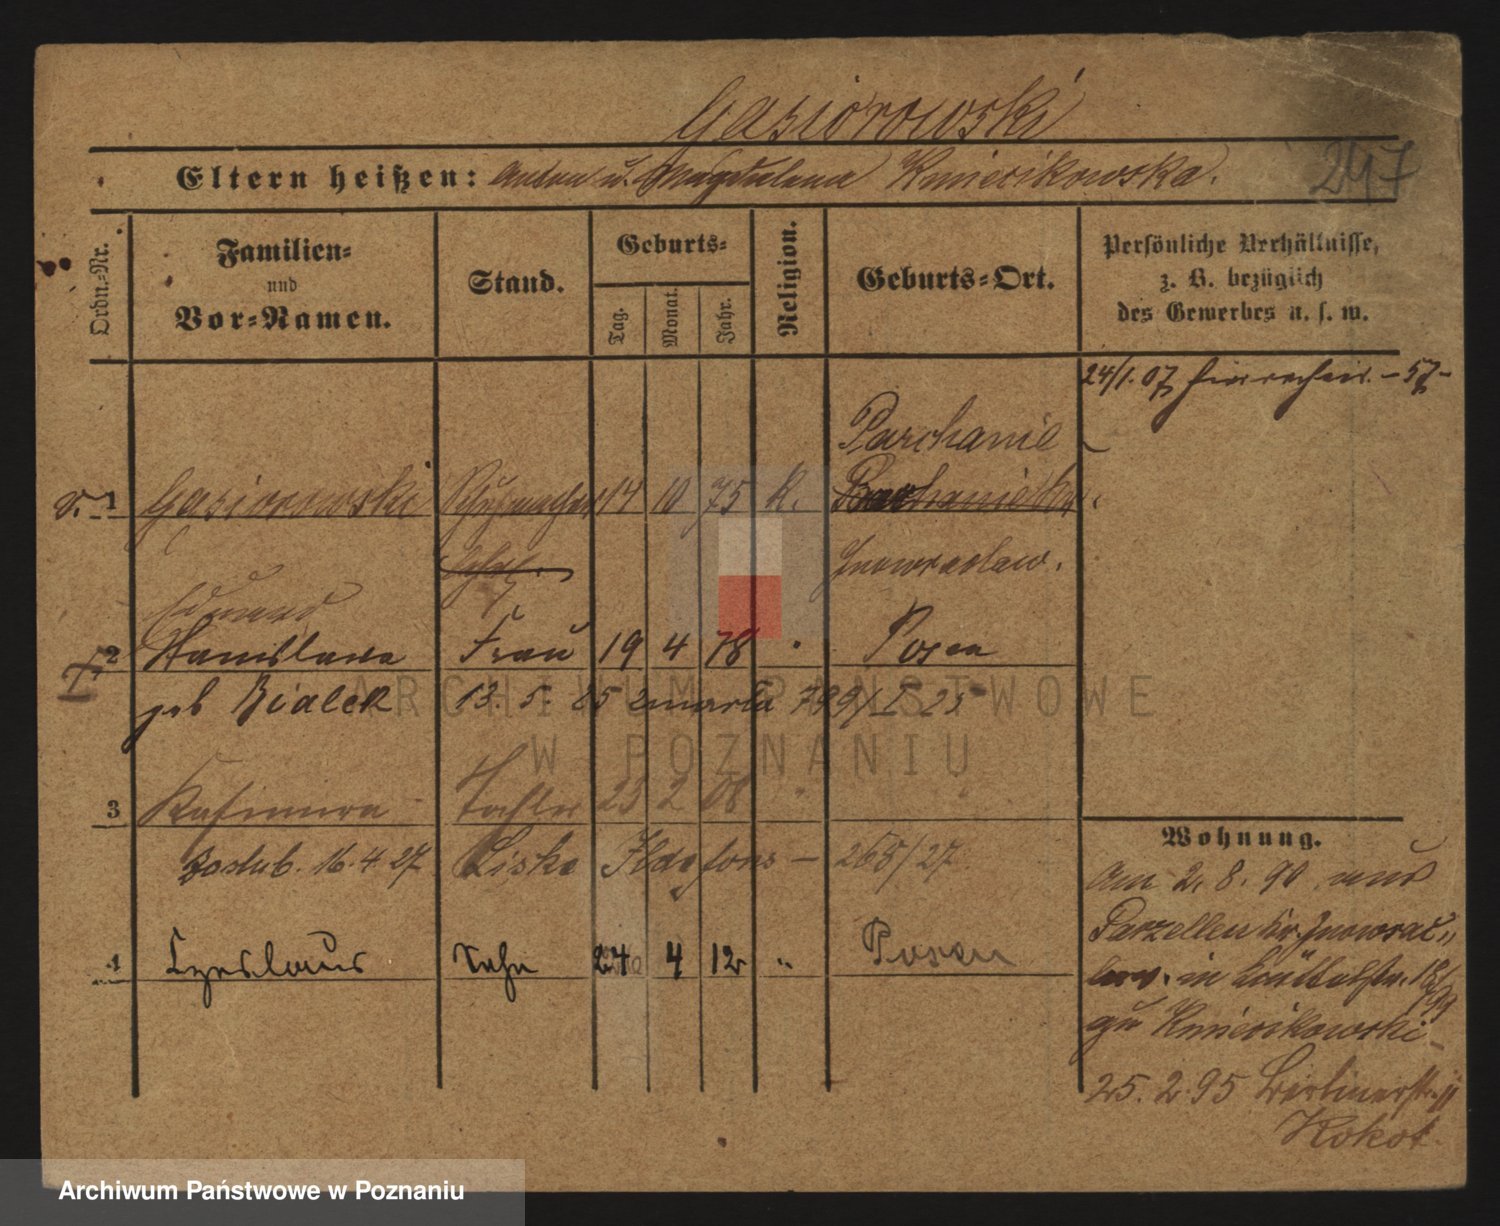 Gasiorowski
Eltern heißen: Anton u. Magdalena Kmiecikowska.
247
Ordn.-Nr.
Familien-
und
Vor-Namen.
Stand.
Geburts-
Tag.
Monat.
Jahr.
Religion.
Geburts-Ort.
Persönliche Verhältnisse,
z. B. bezüglich
des Gewerbes u. s. w.
24/1. 07 57
Parchanie
1 Gasiorowski Schuhmacher 14 10 75 K.
Inowraclaw.
Eduard
2 Stanislawa Frau 19 4 78 " Posen
geb Bialek 13. 5. 25 zmarła 799/I 25
3 Kasimira Tochter 25 2 08 "
zaslub. 16.4.27 Liske Ildefons - 265/27
4 Czeslaus Sohn 24 4 12 " Posen
Wohnung.
Am 2. 8. 90 aus
Parzellen Kr. Inowrac-
law. in
zu Kmiecikowski
25. 2. 95 Berlinerstr. 11
Kokot
ARCHIWUM PAŃSTWOWE
W POZNANIU
Archiwum Państwowe w Poznaniu